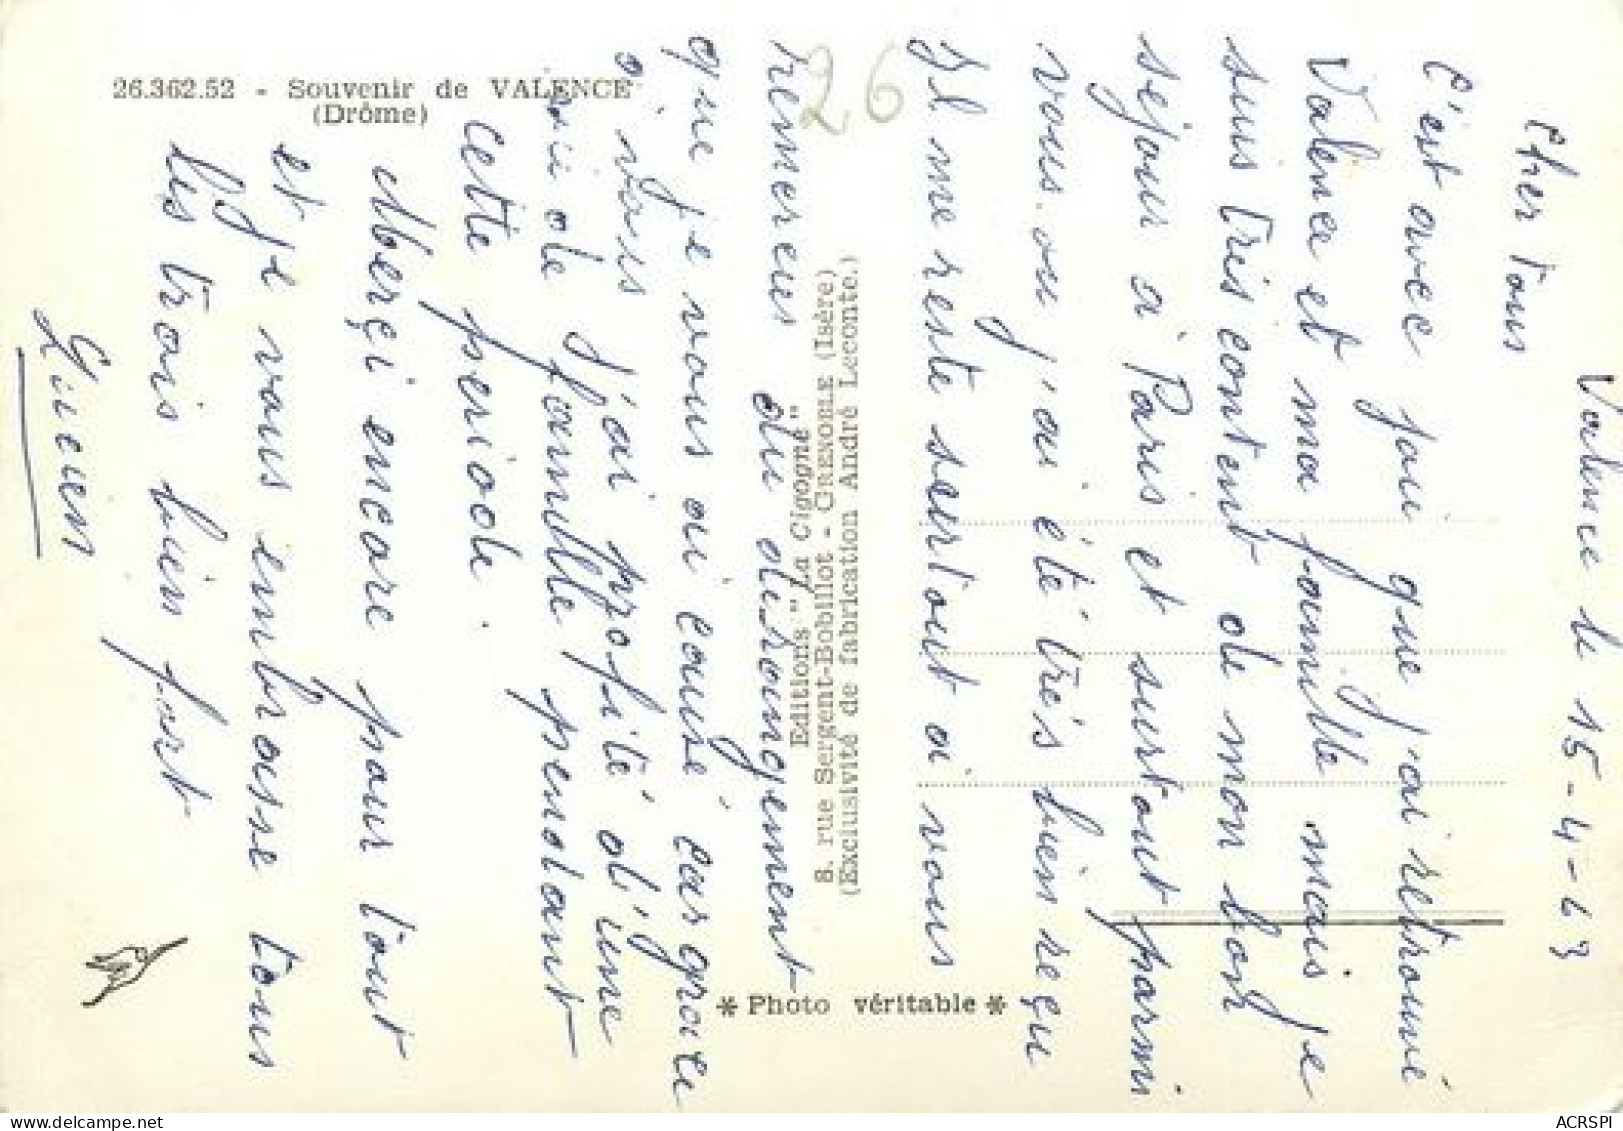 26.362.52 - Souvenir de VALENCE
(Drôme)
Valence le 15-4-63
Cher tous
C'est avec joie que j'ai retrouvé
Valence et ma famille mais je
suis très content de mon bon
sejour à Paris et surtout parmi
vous ou j'ai été très bien reçu
Il me reste surtout à vous
remercier du derangement
que je vous ai causé car grace
à vous j'ai profité d'une
vie de famille pendant
cette periode.
Merçi encore pour tout
et je vous embrasse tous
les trois bien fort
Lucien
26
Editions "La Cigogne"
8. rue Sergent-Bobillot - GRENOBLE (Isère)
(Exclusivité de fabrication André Leconte.)
* Photo véritable *
ACRSPI